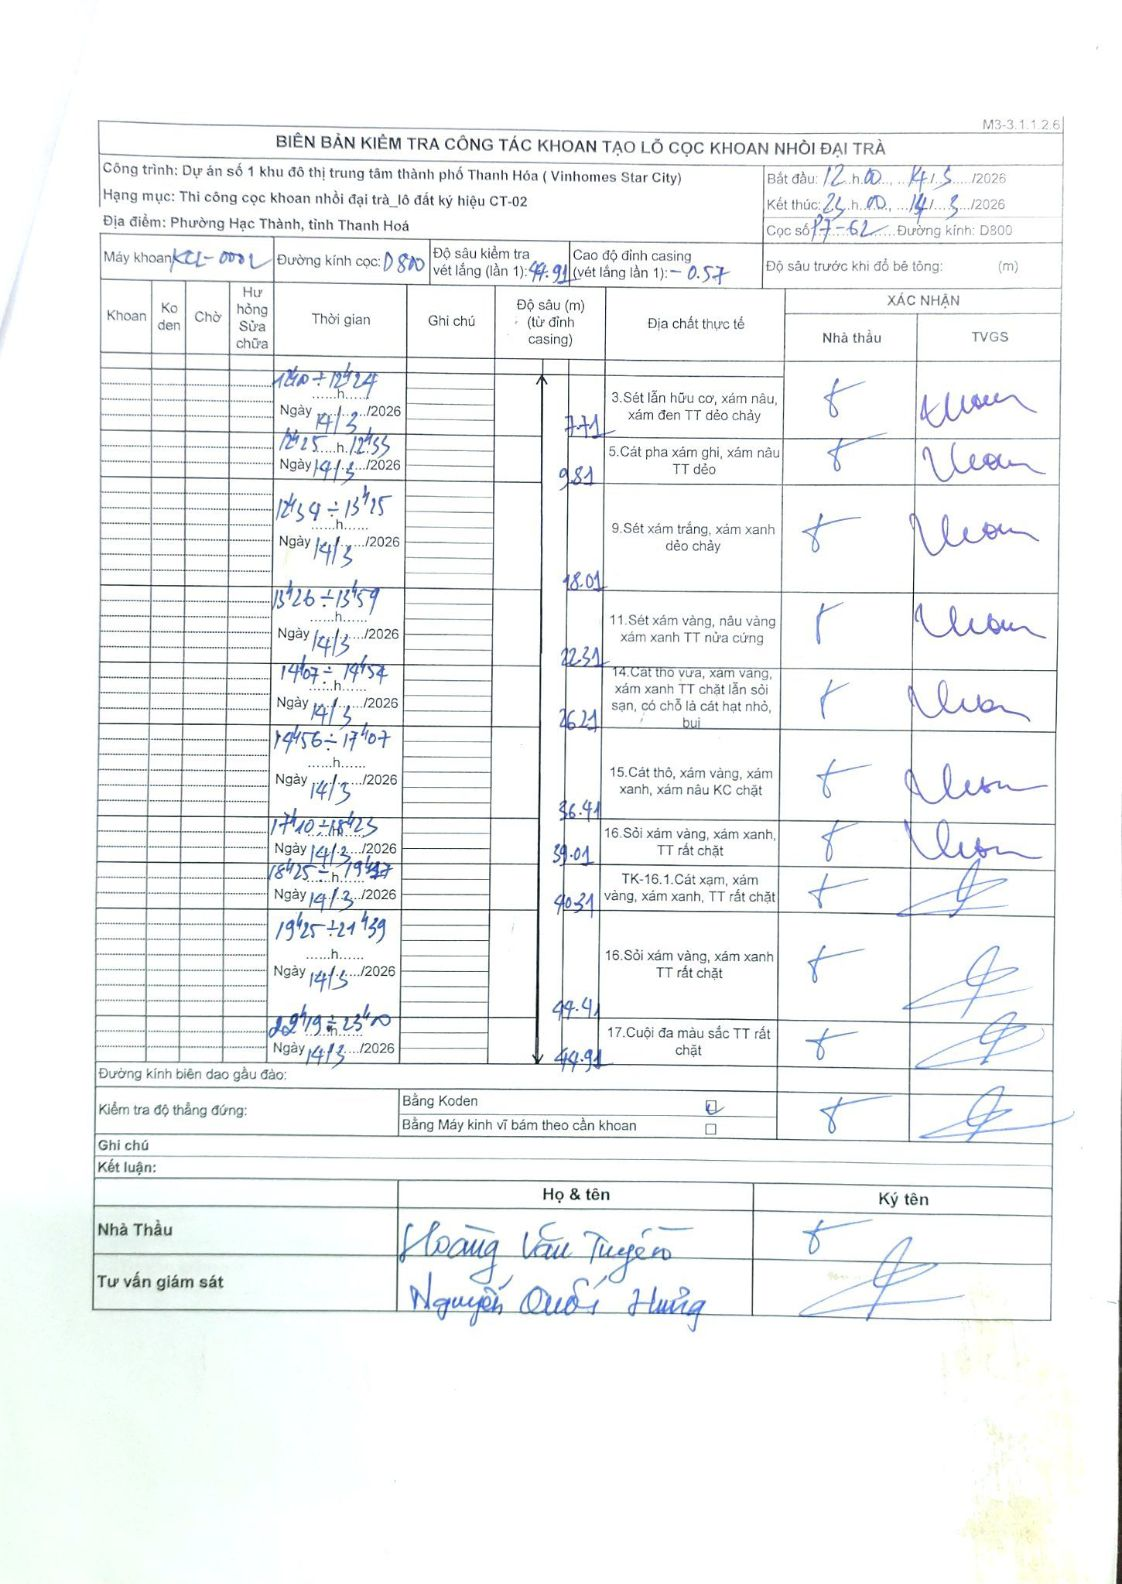 M3-3.1.1.2.6
BIÊN BẢN KIỂM TRA CÔNG TÁC KHOAN TẠO LỖ CỌC KHOAN NHỒI ĐẠI TRÀ
Công trình: Dự án số 1 khu đô thị trung tâm thành phố Thanh Hóa ( Vinhomes Star City)
Hạng mục: Thi công cọc khoan nhồi đại trà_lô đất ký hiệu CT-02
Địa điểm: Phường Hạc Thành, tỉnh Thanh Hoá
Bắt đầu: 12 h 00, 14/3/2026
Kết thúc: 23 h 00, 14/3/2026
Cọc số P7-62 Đường kính: D800
Máy khoan KCL-0002
Đường kính cọc: D800
Độ sâu kiểm tra
vét lắng (lần 1): 44.91
Cao độ đỉnh casing
(vét lắng lần 1): -0.57
Độ sâu trước khi đổ bê tông: (m)
Khoan
Ko
den
Chờ
Hư
hỏng
Sửa
chữa
Thời gian
Ghi chú
Độ sâu (m)
(từ đỉnh
casing)
Địa chất thực tế
XÁC NHẬN
Nhà thầu
TVGS
12h00 ÷ 12h24
......h......
Ngày 14/3/2026
7.71
3.Sét lẫn hữu cơ, xám nâu,
xám đen TT dẻo chảy
12h25 h 12h33
Ngày 14/3/2026
9.81
5.Cát pha xám ghi, xám nâu
TT dẻo
12h34 ÷ 13h25
......h......
Ngày 14/3/2026
18.01
9.Sét xám trắng, xám xanh
dẻo chảy
13h26 ÷ 13h59
......h......
Ngày 14/3/2026
22.31
11.Sét xám vàng, nâu vàng
xám xanh TT nửa cứng
14h07 ÷ 14h54
......h......
Ngày 14/3/2026
26.21
14.Cát thô vừa, xám vàng,
xám xanh TT chặt lẫn sỏi
sạn, có chỗ là cát hạt nhỏ,
bụi
14h56 ÷ 17h07
......h......
Ngày 14/3/2026
36.41
15.Cát thô, xám vàng, xám
xanh, xám nâu KC chặt
17h10 ÷ 18h23
Ngày 14/3/2026
39.01
16.Sỏi xám vàng, xám xanh,
TT rất chặt
18h25 ÷
Ngày 14/3/2026
40.31
TK-16.1.Cát xạm, xám
vàng, xám xanh, TT rất chặt
19h25 ÷ 21h39
......h......
Ngày 14/3/2026
44.41
16.Sỏi xám vàng, xám xanh
TT rất chặt
22h19 ÷ 23h00
Ngày 14/3/2026
44.91
17.Cuội đa màu sắc TT rất
chặt
Đường kính biên dao gầu đào:
Kiểm tra độ thẳng đứng:
Bằng Koden
Bằng Máy kinh vĩ bám theo cần khoan
Ghi chú
Kết luận:
Họ & tên
Ký tên
Nhà Thầu
Hoàng Văn Tuyến
Tư vấn giám sát
Nguyễn Quốc Hưng